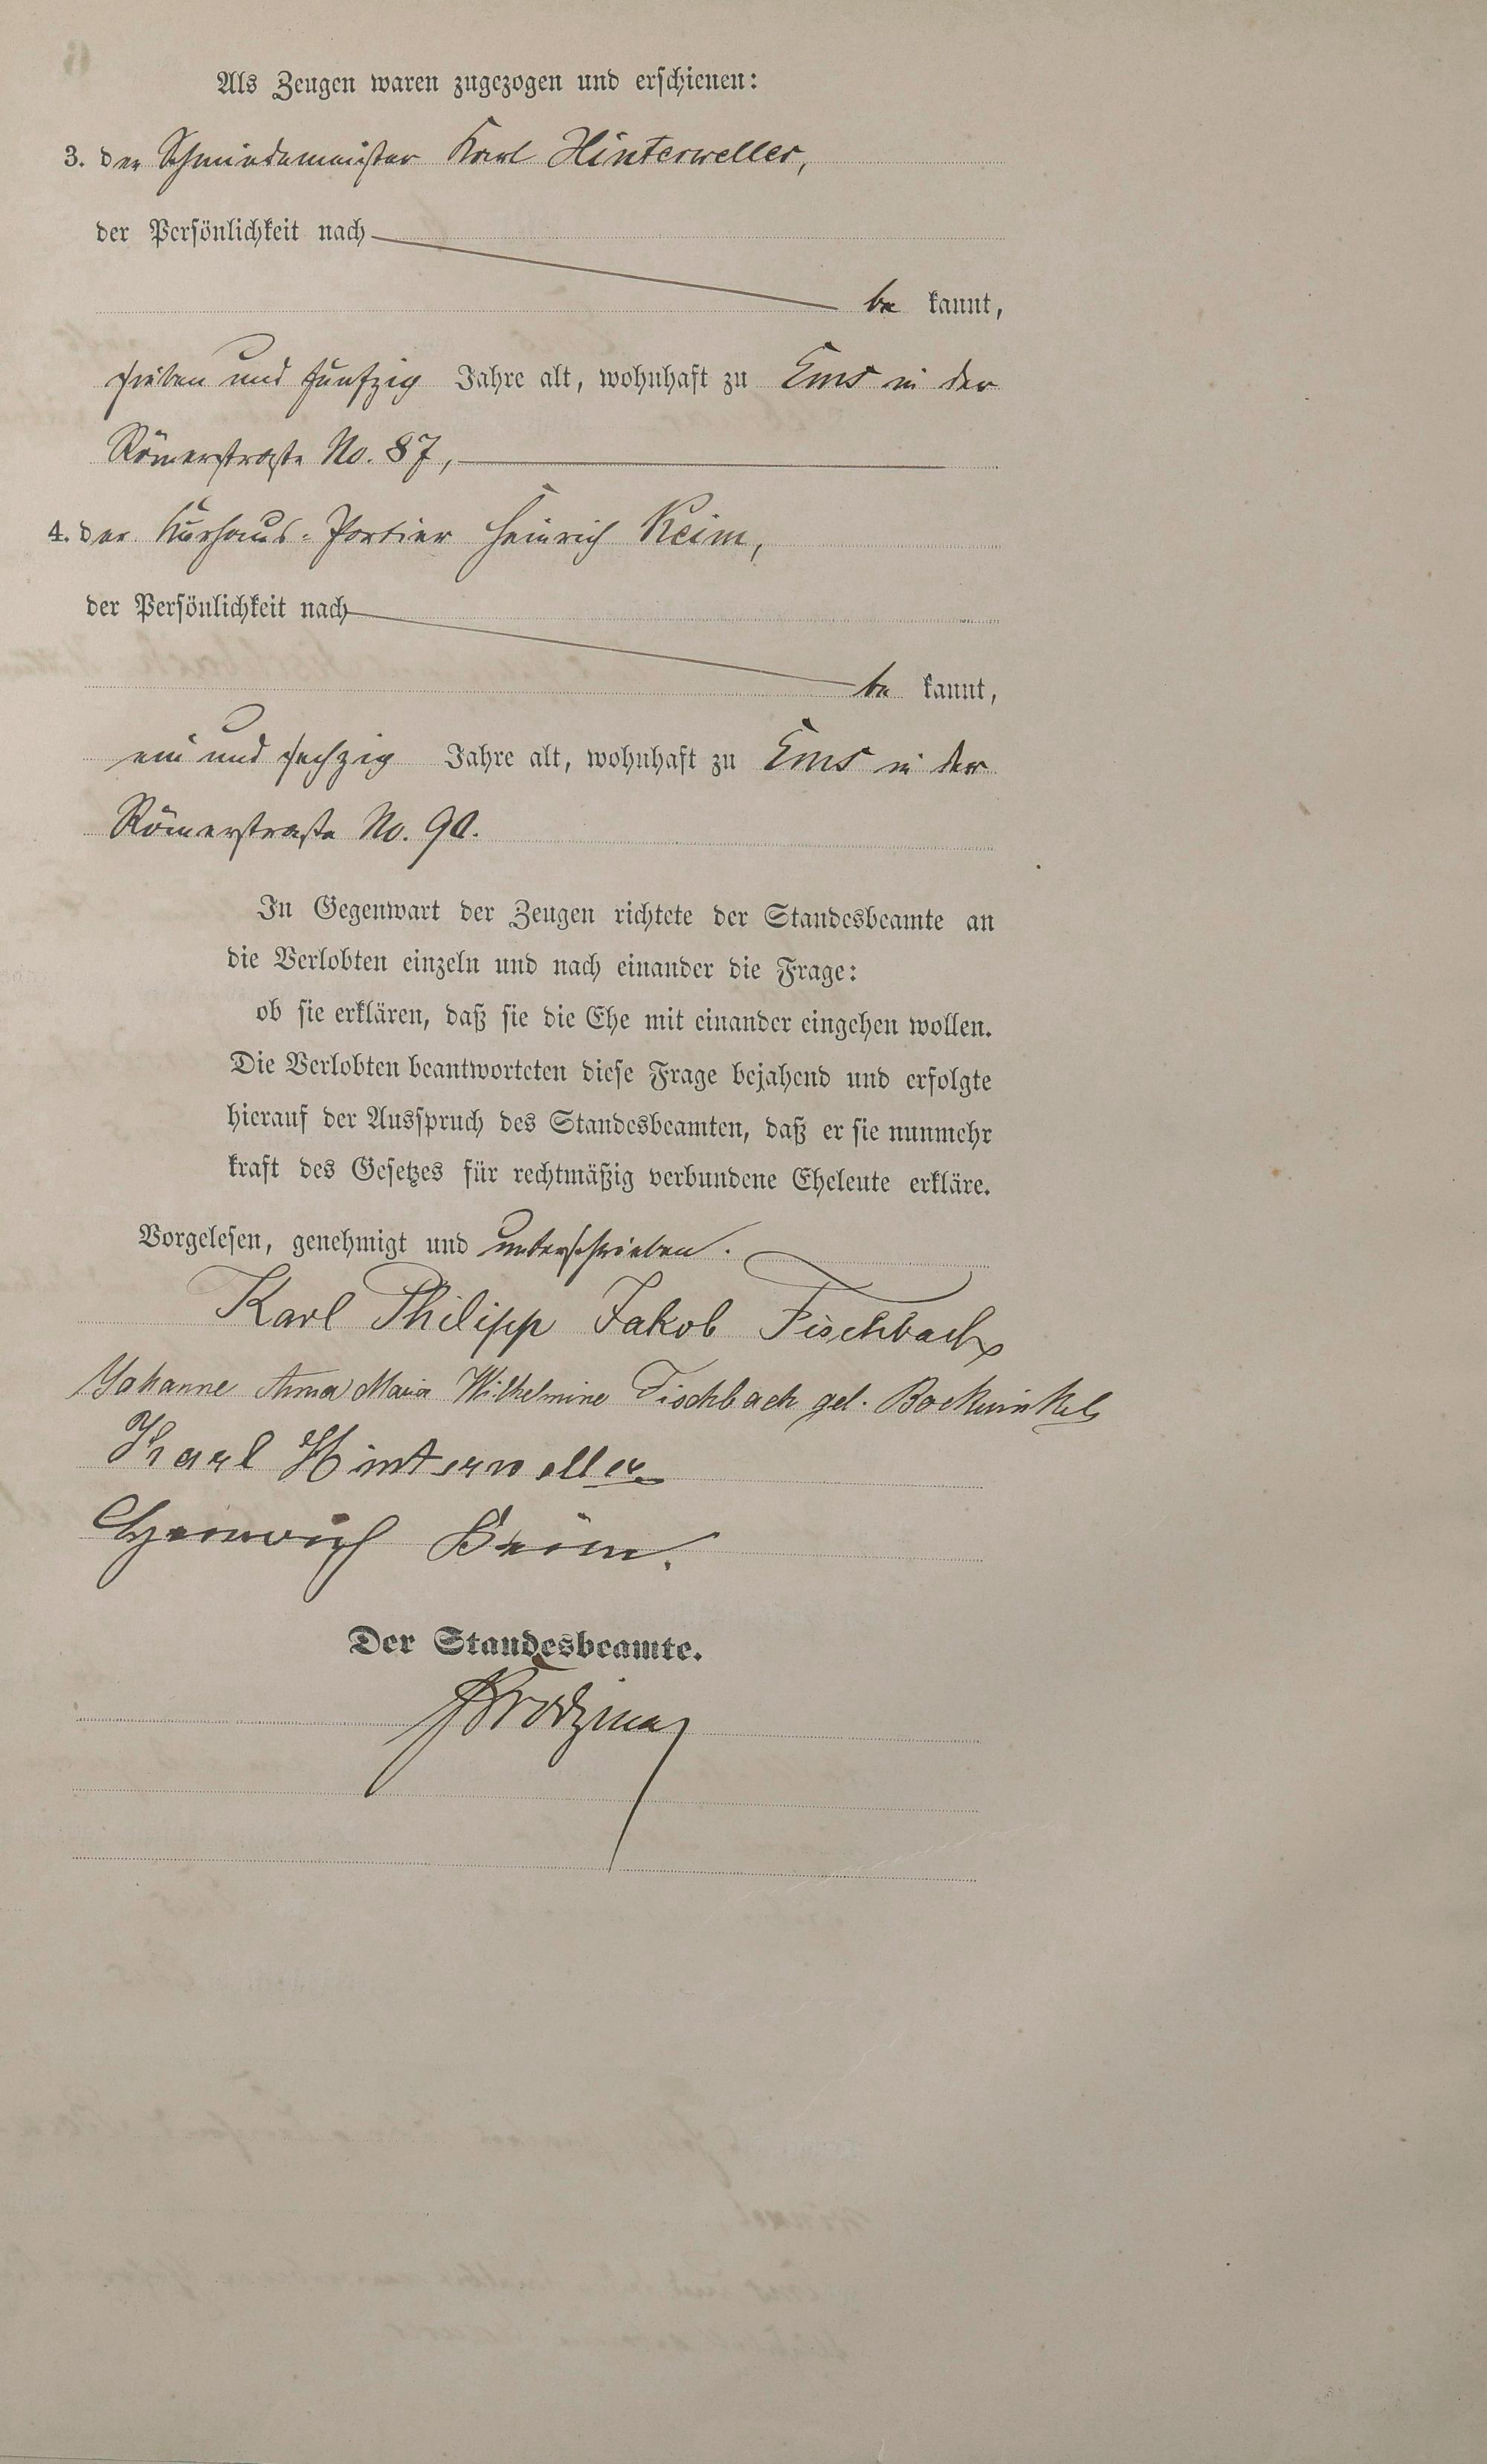 Als Zeugen waren zugezogen und erschienen:
3. der Schmiedemeister Karl Hinterweller,
der Persönlichkeit nach
be kannt,
sieben und fünfzig Jahre alt, wohnhaft zu Ems in der
Römerstraße No. 87,
4. der Kurhaus-Portier Heinrich Keim,
der Persönlichkeit nach
be kannt,
ein und sechzig Jahre alt, wohnhaft zu Ems in der
Römerstraße No. 90.
In Gegenwart der Zeugen richtete der Standesbeamte an
die Verlobten einzeln und nach einander die Frage:
ob sie erklären, daß sie die Ehe mit einander eingehen wollen.
Die Verlobten beantworteten diese Frage bejahend und erfolgte
hierauf der Ausspruch des Standesbeamten, daß er sie nunmehr
kraft des Gesetzes für rechtmäßig verbundene Eheleute erkläre.
Vorgelesen, genehmigt und unterschrieben.
Karl Philipp Jakob Fischbach
Johanne Anna Maria Wilhelmine Fischbach geb. Bockwinkel
Karl Hinterweller
Heinrich Keim.
Der Standesbeamte.